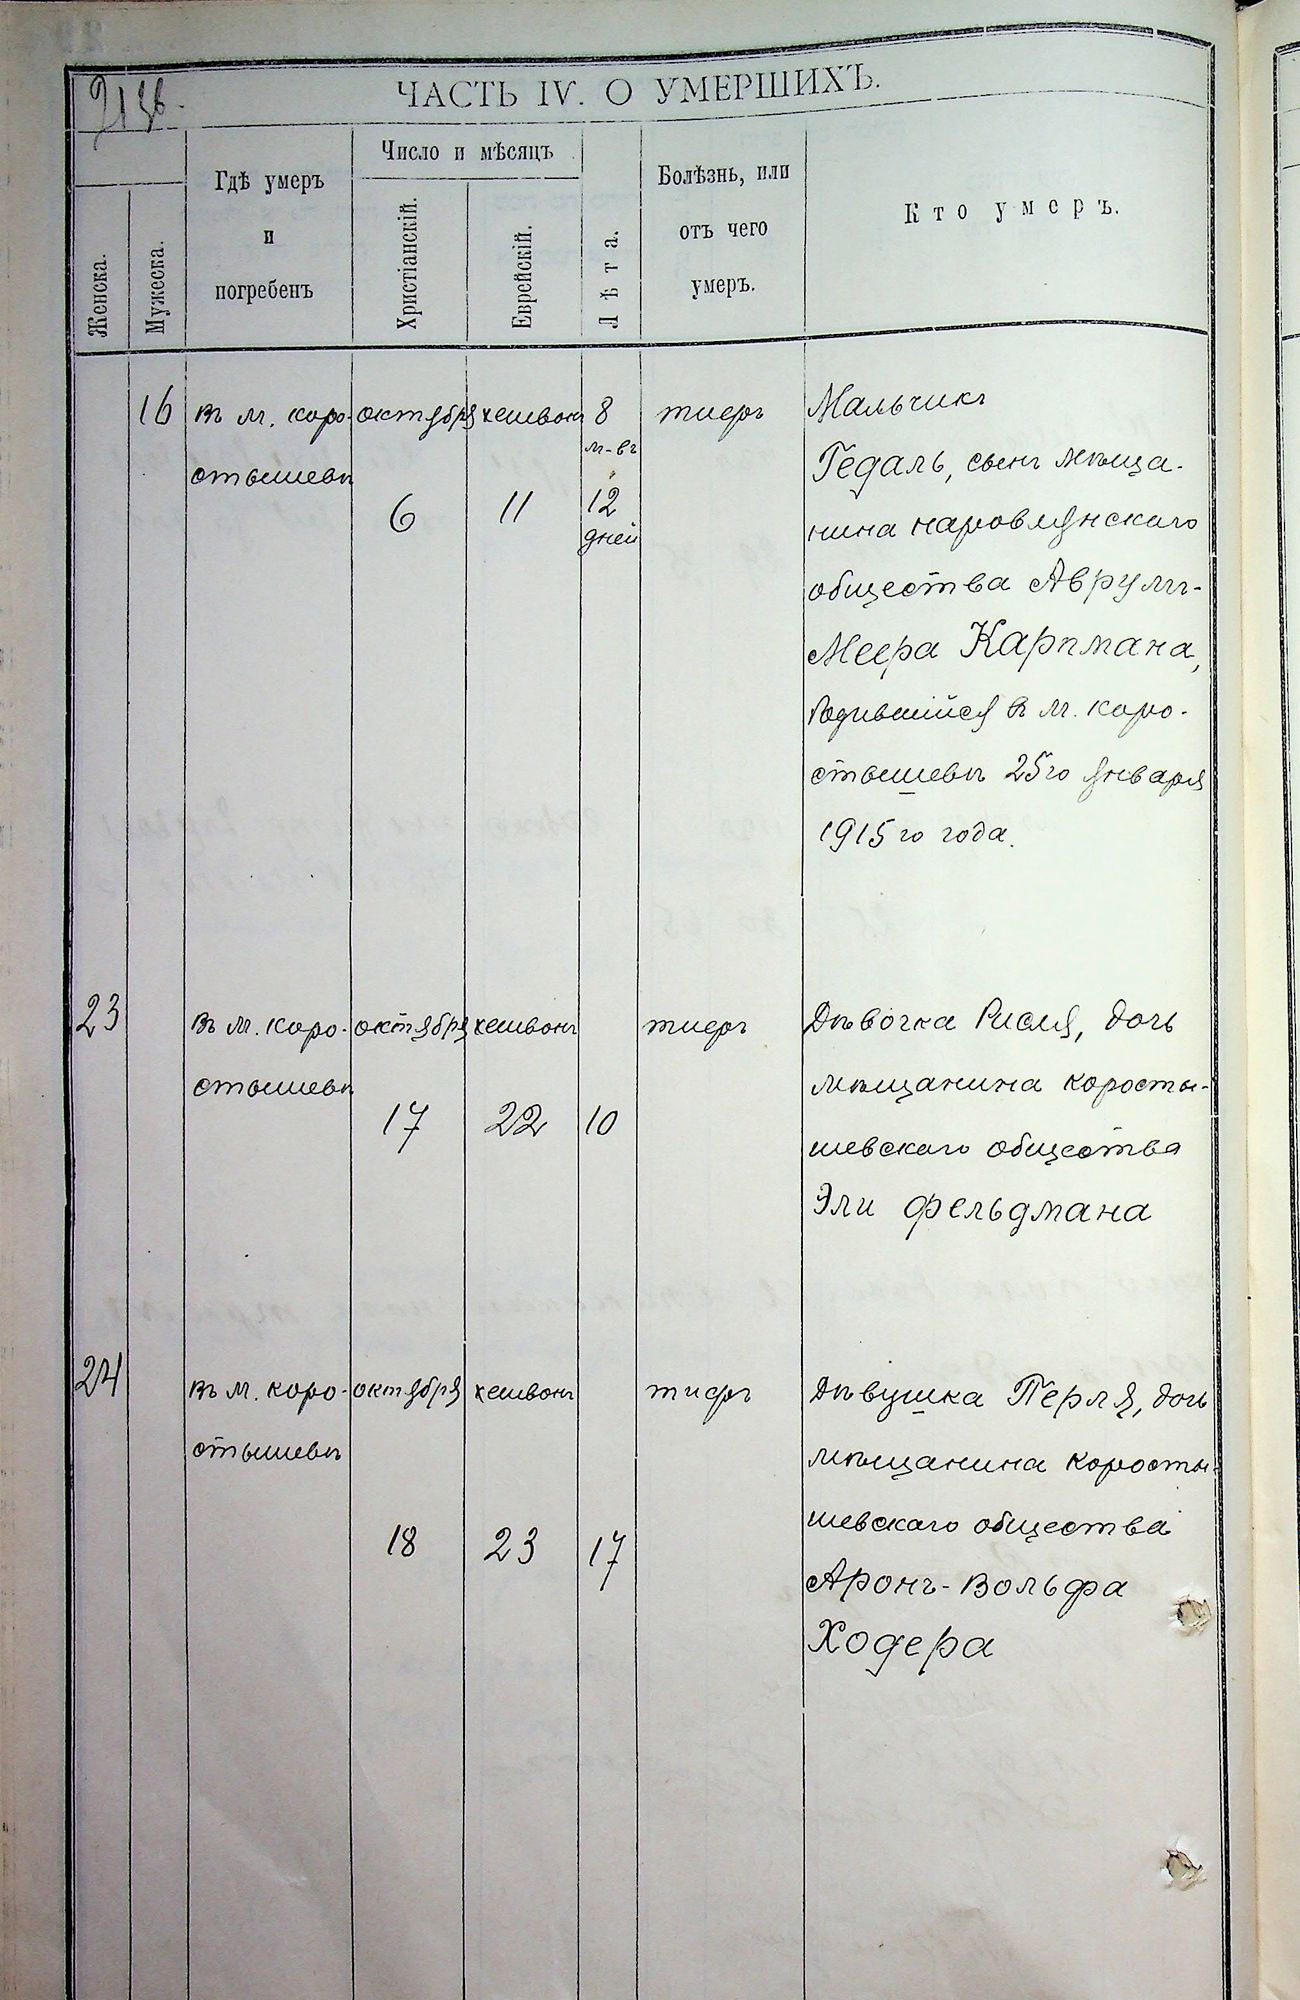 ЧАСТЬ IV. О УМЕРШИХЪ.
Женска.
Мужеска.
Гдѣ умеръ
и
погребенъ
Число и мѣсяцъ
Христіанскій.
Еврейскій.
Лѣта.
Болѣзнь, или
отъ чего
умеръ.
Кто умеръ.
16
Въ м. коро-
стышевѣ
октября
6
хешвонъ
11
8
м-въ
12
дней
тифъ
Мальчикъ
Гедаль, сынъ мѣща-
нина наровлянскаго
общества Аврумъ-
Меера Карпмана,
родившійся въ м. коро-
стышевѣ 25го января
1915 го года.
23
Въ м. коро-
стышевѣ
октября
17
хешвонъ
22
10
тифъ
Дѣвочка Рися, дочь
мѣщанина коросты-
шевскаго общества
Эли Фельдмана
24
Въ м. коро-
стышевѣ
октября
18
хешвонъ
23
17
тифъ
Дѣвушка Перля, дочь
мѣщанина коросты-
шевскаго общества
Аронъ-Вольфа
Ходера